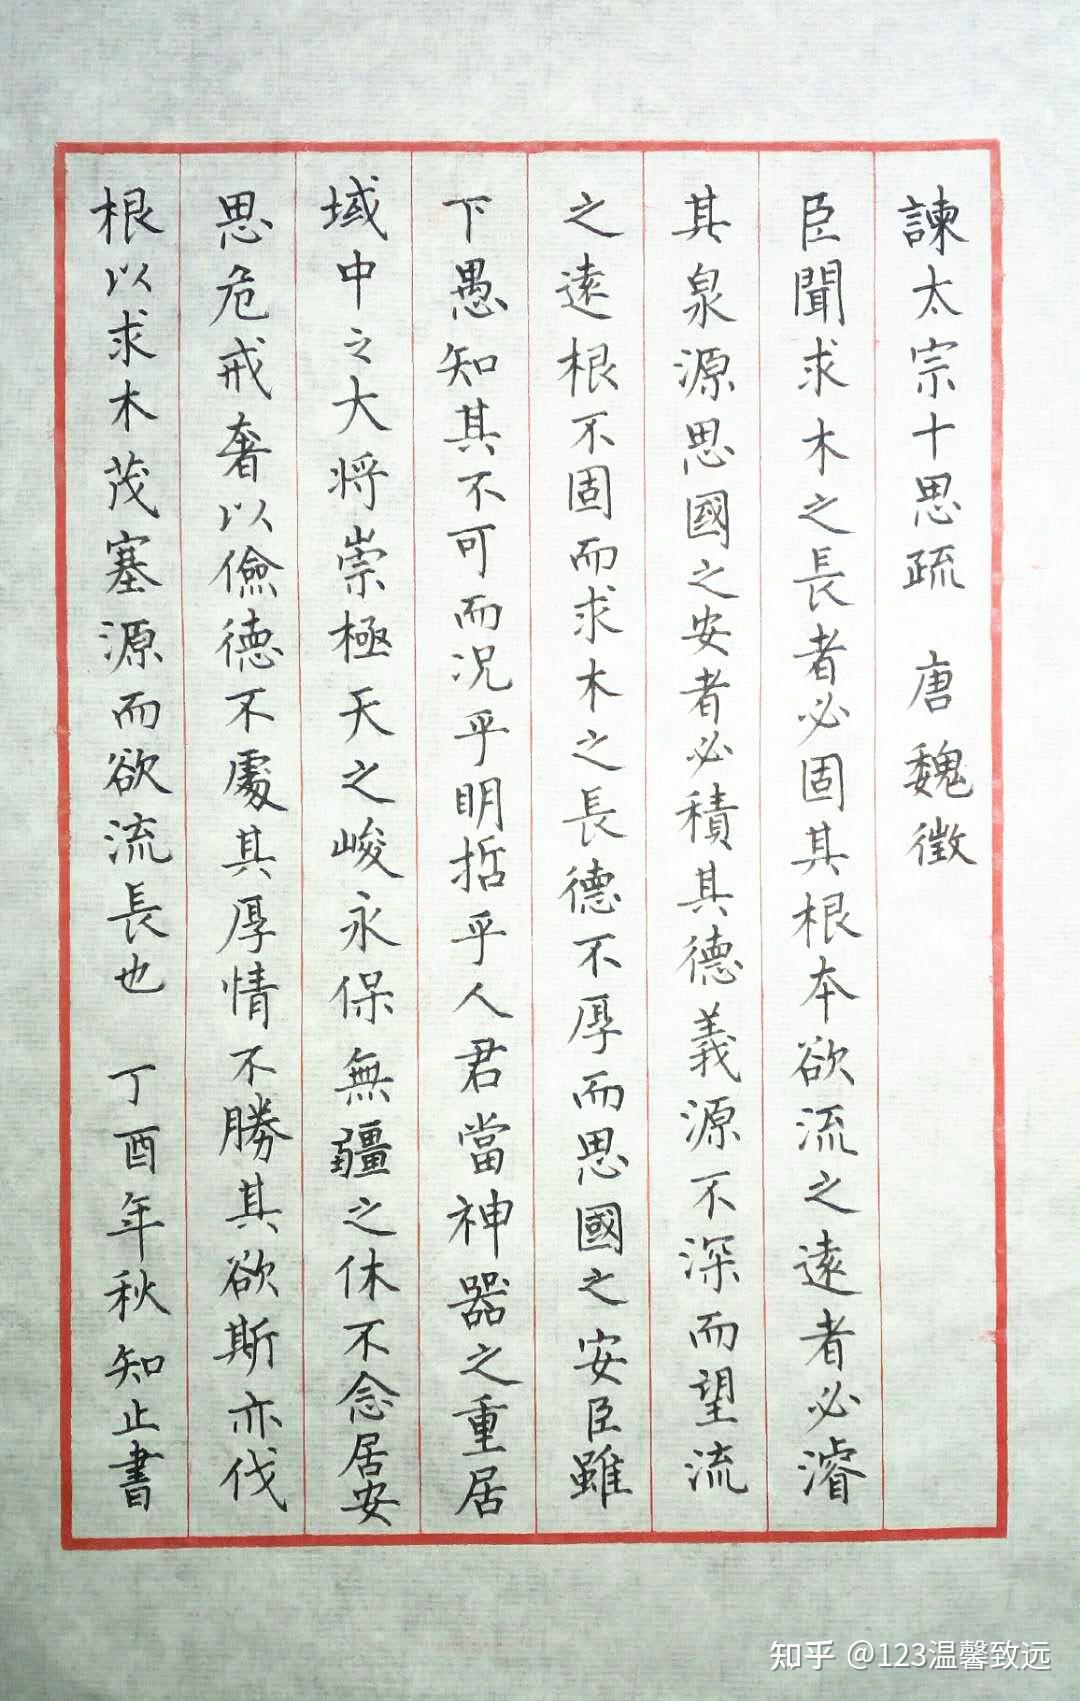 諫太宗十思疏 唐魏徵
臣聞求木之長者必固其根本欲流之遠者必濬
其泉源思國之安者必積其德義源不深而望流
之遠根不固而求木之長德不厚而思國之安臣雖
下愚知其不可而況乎明哲乎人君當神器之重居
域中之大将崇極天之峻永保無疆之休不念居安
思危戒奢以儉德不處其厚情不勝其欲斯亦伐
根以求木茂塞源而欲流長也 丁酉年秋知止書
知乎 @123温馨致远